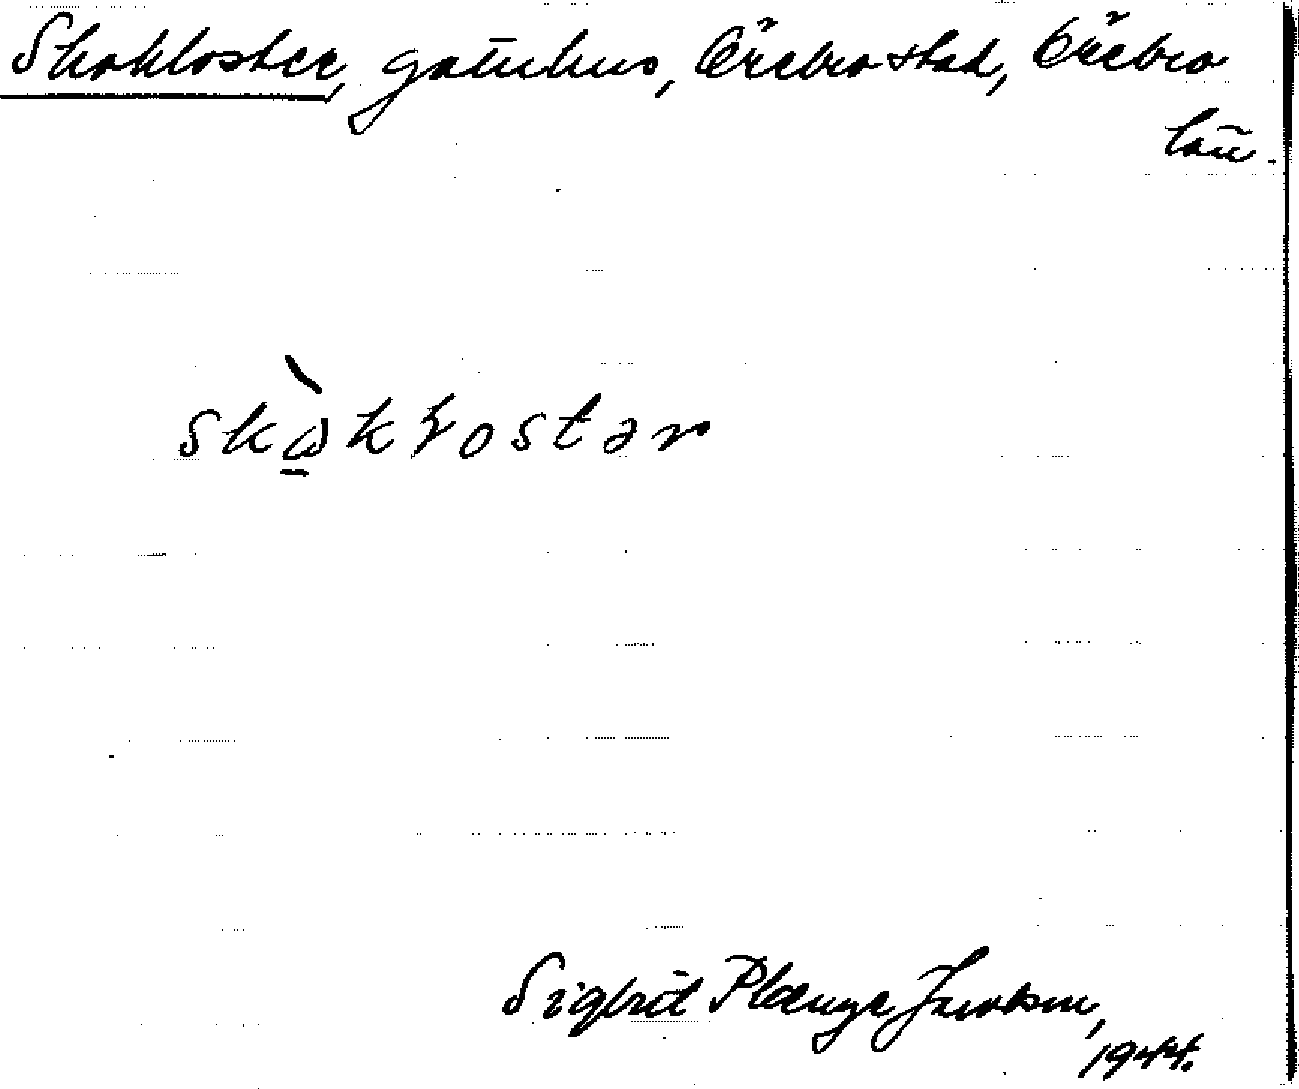 Skokloster, gatuhus, Örebro stad, Örebro
län.
skòkłostər
Sigfrid Plænge Jacobson,
1944.